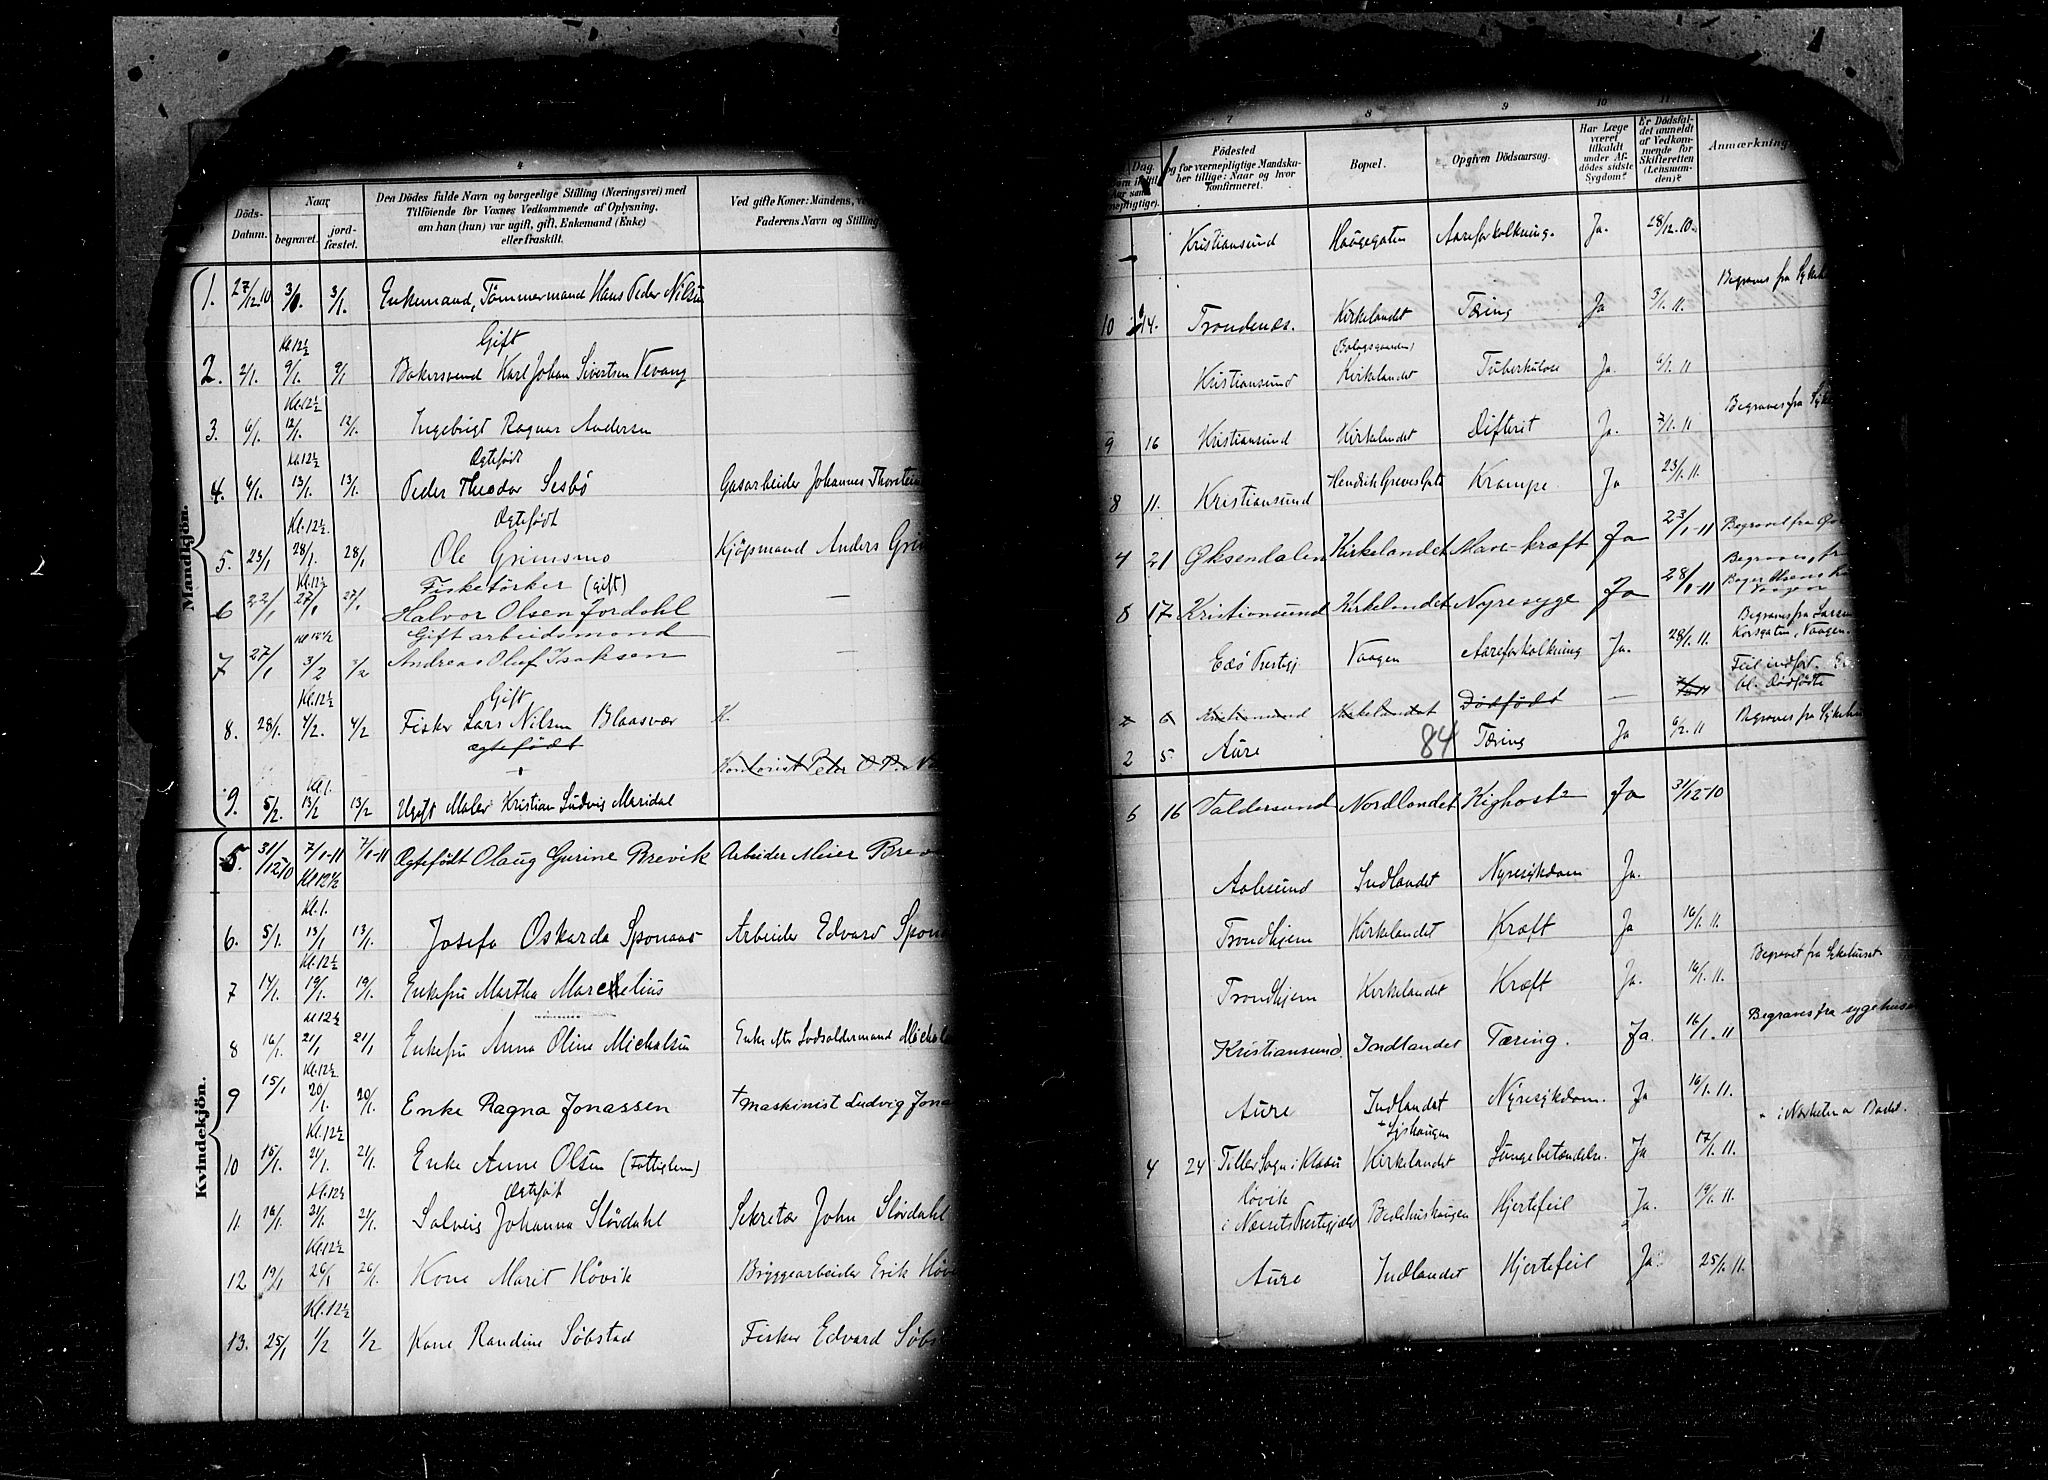 3
4
Døds-
Datum.
Naar
begravet.
jord-
fæstet.
Den Dödes fulde Navn og borgerlige Stilling (Næringsvei) med
Tilföiende for Voxnes Vedkommende af Oplysning,
om han (hun) var ugift, gift, Enkemand (Enke)
eller fraskilt.
Ved gifte Koner: Mandens, v
Faderens Navn og Stilling
Mandkjön.
1. 27/12 10 3/1. 3/1. Enkemand, Tömmermand Hans Peder Nilsen
Kl 12½ Gift
2. 2/1. 9/1. 9/1 Bakersvend Karl Johan Sivertsen Vevang
Kl. 12½
3. 6/1. 12/1. 12/1. Ingebrigt Ragnar Andersen
Kl 12½ Ægtefödt
4. 6/1. 13/1. 13/1. Peder Theodor Sesbö Gasarbeider Johannes Thorstein
Kl. 12½ Ægtefödt
5. 23/1 28/1. 28/1 Ole Grimsmo Kjöpmand Anders Gri
Kl. 12½ Fisketörker (gift)
6 22/1 27/1 27/1 Halvor Olsen Jordahl —
Kl 12½ Gift arbeidsmand
7 27/1 3/2 3/2 Andreas Oluf Isaksen —
Kl. 12½ Gift
8. 28/1. 4/2. 4/2 Fisker Lars Nilsen Blaasvær K.
ægtefödt
Kontorist Peter O.
Kl 1.
9. 5/2. 13/2 13/2 Ugift Maler Kristian Ludvig Maridal
Kvindekjön.
5. 31/12 10 7/1-11 7/1-11 Ægtefödt Olaug Gurine Brevik Arbeider Meier Brev
Kl 12½
Kl. 1.
6. 5/1. 13/1 13/1. Josefa Oskarda Sponaas Arbeider Edvard Spon
Kl. 12½
7 14/1. 19/1. 19/1. Enkefru Martha Marcelius
Kl 12½
8 16/1. 21/1 21/1 Enkefru Anna Oline Michalsen Enke efter Lodsoldermand Michal
Kl. 12½
9 15/1 20/1. 20/1. Enke Ragna Jonassen † Maskinist Ludvig Jona
Kl. 12½
10 15/1. 21/1. 21/1. Enke Anne Olsen (Fattiglem)
Kl. 12½ Ægtefödt
11. 16/1. 21/1. 21/1. Solveig Johanna Slördahl Sekretær John Slördahl
Kl. 12½
12 19/1 26/1 26/1. Kone Marit Hövik Bryggearbeider Erik Höv
Kl. 12½
13. 25/1 1/2 1/2 Kone Randine Söbstad Fisker Edvard Söbs
7
8
9
10
11
Dag.
Födested
og for værnepligtige Mandska-
ber tillige: Naar og hvor
konfirmeret.
Bopæl.
Opgiven Dödsaarsag.
Har Læge
været
tilkaldt
under Af-
dödes sidste
Sygdom?
Er Dödsfal-
det anmeldt
af Vedkom-
mende for
Skifteretten
(Lensman-
den)?
Anmærkning
Kristiansund Haugegaten Aareforkalkning. Ja. 28/12.10.
Begraves fra Sykeh
10 14. Trondenes. Kirkelandet Tæring Ja 3/1. 11.
Kristiansund Kirkelandet Tuberkulose Ja. 6/1. 11
Begraves fra Syke
9 16 Kristiansund Kirkelandet Difterit Ja. 7/1. 11
8 11. Kristiansund Hendrik Greves Gate Krampe. Ja 23/1. 11.
4 21 Øksendalen Kirkelandet Mave-kræft Ja 23/1-11 Begravet fra
Begraves fra
8 17 Kristiansund Kirkelandet Nyresyge Ja 28/1-11 Vaagen
Begraves fra Larsen
Edö Prestegj Vaagen Aareforkalkning Ja. 28/1. 11 Korsgaten, Vaagen.
Feil indfört.
6 Kristiansund Kirkelandet Dödfödt — Dödfödte
84
2 5. Aure Tæring Ja 6/2. 11 Begraves fra Sykehus
6 16 Valdersund Nordlandet Kighoste Ja 31/12 10
Aalesund Indlandet Nyresykdom Ja.
Trondhjem Kirkelandet Kræft Ja 16/1. 11.
Begravet fra Sykehuset
Trondhjem Kirkelandet Kræft Ja. 16/1. 11.
Begraves fra sygehuset
Kristiansund Indlandet Tæring. Ja. 16/1. 11
Aure Indlandet Nyresykdom. Ja 16/1. 11.
4 24 Tiller Sogn i Klæbu Kirkelandet Lungebetændelse. Ja 17/1. 11.
Hövik
i Næssets Prestegjæld Bedehushaugen Hjertefeil Ja. 19/1. 11.
Aure Indlandet Hjertefeil Ja. 25/1. 11.